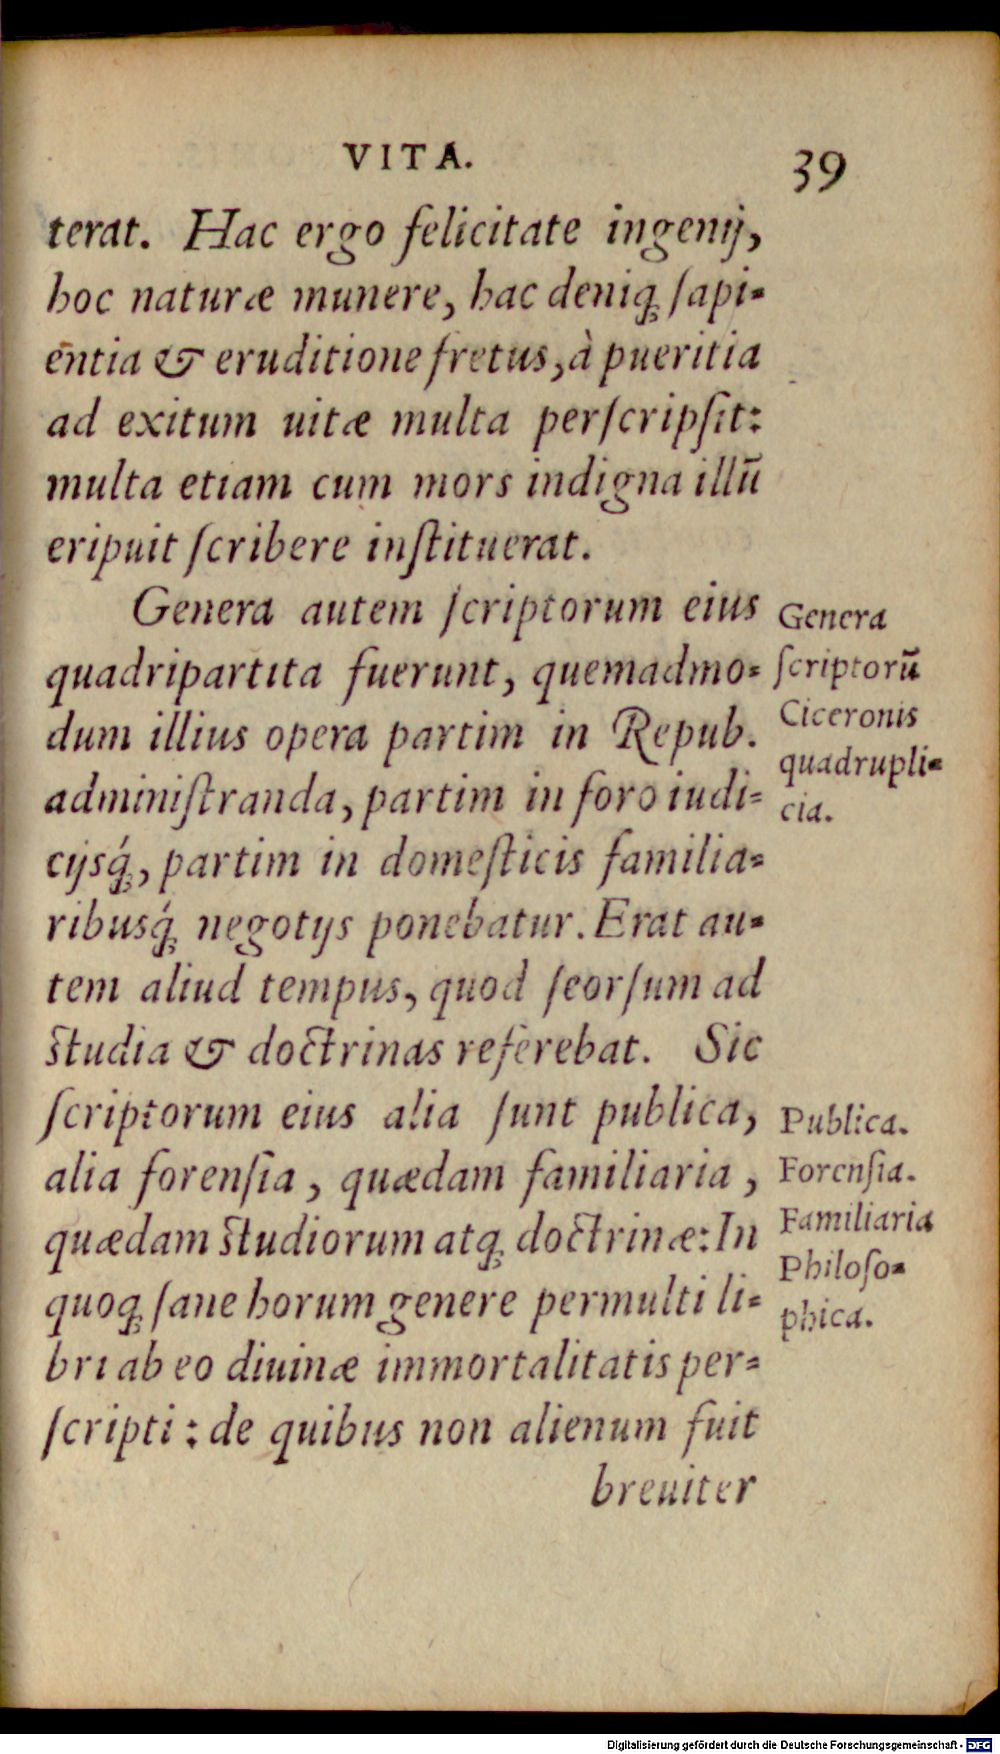 VITA. 39
terat. Hac ergo felicitate ingenij,
hoc naturæ munere, hac deniqꝫ ſapi-
ēntia & eruditione fretus, à pueritia
ad exitum uitæ multa perſcripſit:
multa etiam cum mors indigna illū
eripuit ſcribere inſtituerat.
Genera autem ſcriptorum eius
quadripartita fuerunt, quemadmo-
dum illius opera partim in Repub.
adminiſtranda, partim in foro iudi-
cijsq́ꝫ, partim in domeſticis familia-
ribusq́ꝫ negotijs ponebatur. Erat au-
tem aliud tempus, quod ſeorſum ad
ſtudia & doctrinas referebat. Sic
ſcriptorum eius alia ſunt publica,
alia forenſia, quædam familiaria,
quædam ſtudiorum atqꝫ doctrinæ: In
quoqꝫ ſane horum genere permulti li-
bri ab eo diuinæ immortalitatis per-
ſcripti: de quibus non alienum fuit
breuiter
Genera
ſcriptorū
Ciceronis
quadrupli-
cia.
Publica.
Forenſia.
Familiaria
Philoſo-
phica.
Digitalisierung gefördert durch die Deutsche Forschungsgemeinschaft - DFG